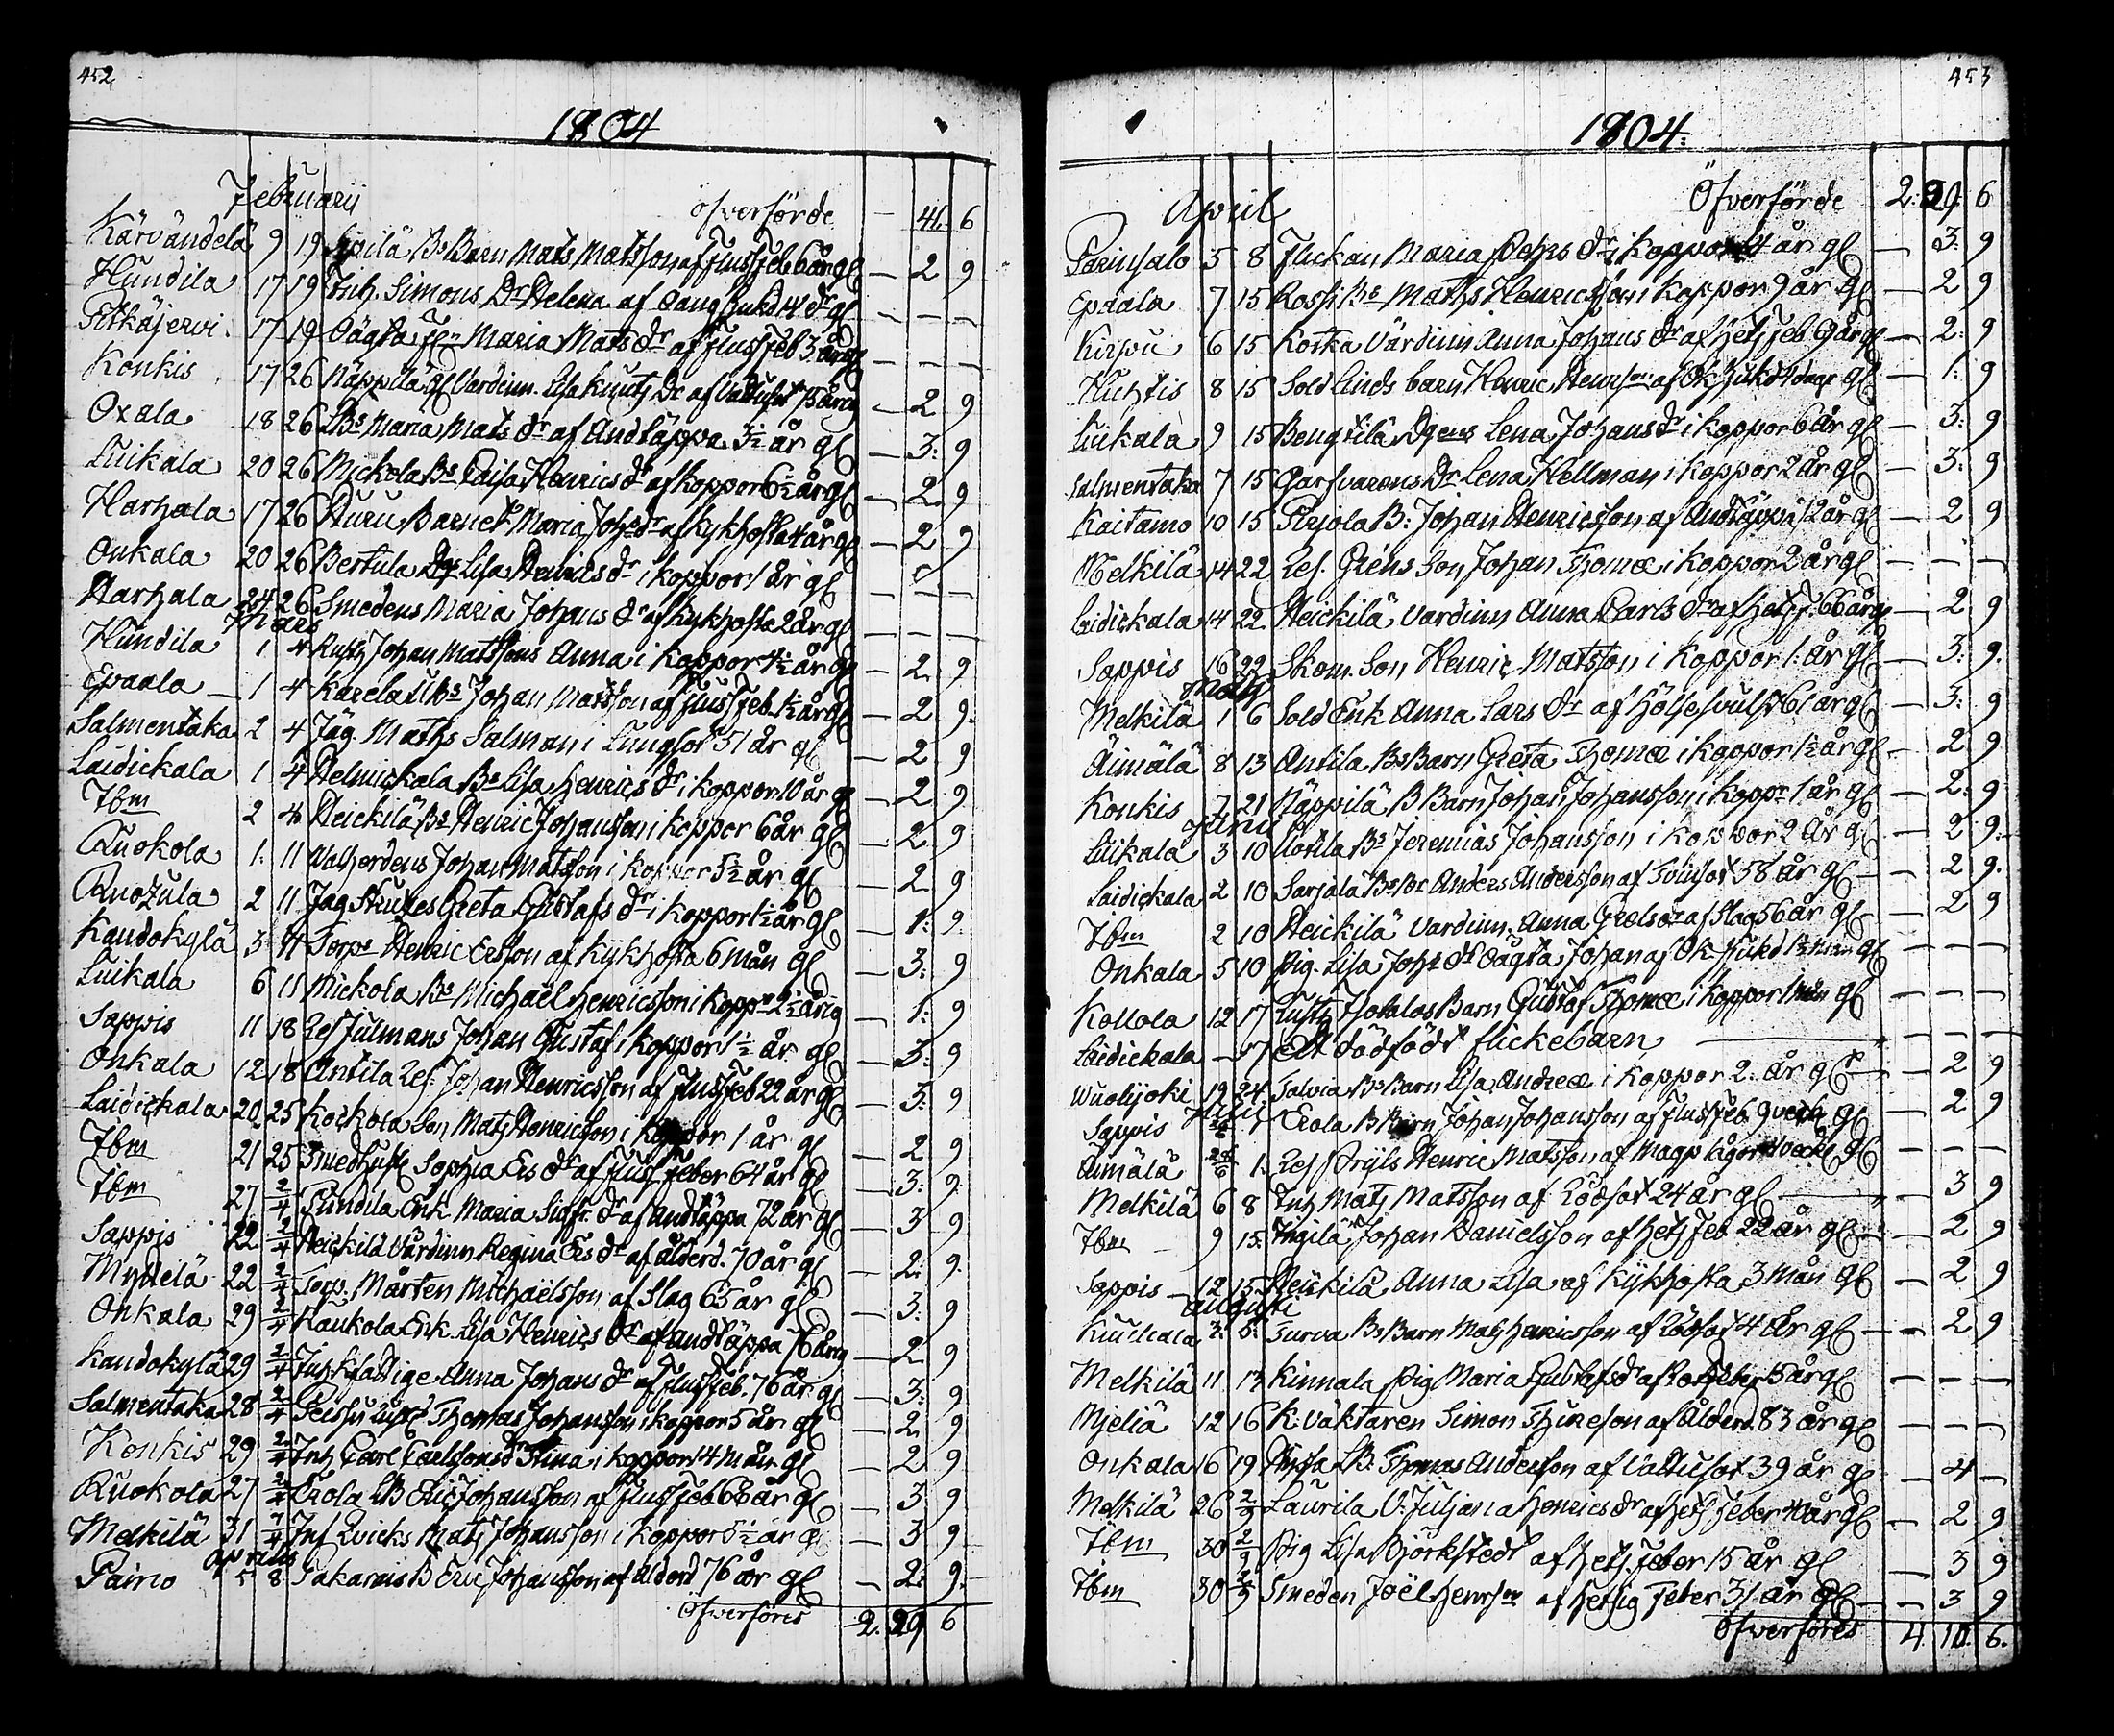 452
1804
Februarii
öfverförde — 41. 6
Kärvändelä 9 19 Sipilä Bs Barn Mats Matsson af flussfeb 6 år gl — 2 9
Hundila 17 19 Inh. Simons Dr Helena af Sjukd 14 gl — — —
Pitkäjervi 17 19 Oägta Maria Mats dr af flussfeb 3 år gl — — —
Konkis 17 26 Näppilä gl Vardinn. Lisa Knuts Dr af Vattusot 75 år gl — 2 9
Oxala 18 26 Bs Maria Mats dr af Andtäppa 3½ år gl — 3: 9
Luikala 20 26 Mickola Bs Caisa Henrics dr af Koppor 6½ år gl — 2. 9
Harhala 17 26 Auru Barnet Maria Johs dr af Kykhosta 4 år gl — 2 9
Onkala 20 26 Bertula Lisa Henrics dr i koppor 1 år gl
Harhala 24 26 Smedens Maria Johans dr af Kykhosta 2 år gl — — —
Mars
Hundila 1 4 Johan Matssons Anna i Koppor 4½ år gl — 2. 9
Epaala 1 4 Karela Johan Matsson af flussfeb. 1½ år gl — 2 9.
Salmentaka 2 4 Jäg. Maths Salman i Lungsot 51 år gl — 2 9
Laidickala 1 4 Helmickala Bs Lisa Henrics dr i koppor 10 år gl — 2 9
Ibm 2 4 Heickilä Bs Henric Johansson i koppor 6 år gl — 2 9
Ruokola 1. 11 Johan Matsson i koppor 5½ år gl — 2 9
Ruotzula 2 11 Jag Greta Gustafs dr i koppor 1½ år gl — 1: 9.
Kandokylä 3 11 Torpe Henric Ersson af Kykhosta 6 mån gl — 3: 9
Luikala 6 11 Mickola Bs Michaël Henricsson i Koppr 2½ år gl — 1: 9
Sappis 11 18 Julmans Johan Gustaf i koppor 1½ år gl — 3: 9
Onkala 12 18 Antila Johan Henricsson af flussfeb 22 år gl — 3: 9
Laidickala 20 25 Kockola Son Mats Henricsson i Koppor 1 år gl — 2 9
Ibm 21 25 Sophia Ers dr af fluss feber 64 år gl — 3: 9.
Ibm 27 2/4 Enk Maria dr af Andtäppa 72 år gl — 3 9
Sappis 22 2/4 Heickilä Värdinn Regina Ers dr af ålderd. 70 år gl — 2: 9.
Myttelä 22 2/4 Torp. Mårten Michaëlsson af Slag 65 år gl — 3: 9.
Onkala 29 2/4 Kaukola Enk. Lisa Henrics dr af andtäppa 76 år gl — 2 9
Kandokylä 29 2/4 Inh Kfattige Anna Johans dr af flussfeb. 76 år gl — 3: 9
Salmentaka 28 2/4 Thomas Johansson i koppor 5 år gl — 2 9
Konkis 29 2/4 Inh Carl Carlssons dr Stina i koppor 14 mån gl — 2 9
Ruokola 27 2/4 Erola Eric Johansson af flussfeb 68 år gl — 3 9
Melkilä 31 2/4 Inh Qvicks Mats Johansson i koppor 5½ år gl — 3 9
Aprilis
Paino 5 8 Eric Johansson af ålderd 76 år gl — 2: 9.
Öfverföres 2. 29 6
453
1804.
April
Öfverförde 2: 29: 6
Parinsalo 5 8 Flickan Maria Pehrs dr i Koppor 4 år gl — 3: 9
Epaala 7 15 Rossi Bs Maths Henricsson i Koppor 9 år gl — 2 9
Kirisu 6 15 Kotka Värdinn Anna Johans dr af Hets feb år gl — 2: 9
Huhtis 8 15 Sold Linds barn Henric Henrsson af Ok Sjukd dagr gl — 1: 9
Luikala 9 15 Bengtilä Lena Johans dr i koppor 6 år gl — 3: 9
Salmentaka 7 15 Garfvarens Dr Lena Hellman i koppor 2 år gl — 3: 9
Kaitamo 10 15 Pirjola B: Johan Henricsson af Andtäppa 72 år gl — 2 9
Melkilä 14 22 Gréns Son Johan Thomæ i koppor 2 år gl — — —
Laidickala 14 22 Heickilä Vardinn Anna Carls dr af hets f. 66 år gl — 2 9
Sappis 16 22 Skom. Son Henric Matsson i Koppor 1. år gl — 3: 9.
Maij
Melkilä 1 6 Sold Enk Anna Lars dr af 61 år gl — 3: 9
Äimälä 8 13 Antila Bs Barn Greta Thomæ i koppor 1½ år gl — 2 9
Konkis 7 21 Näppilä B Barn Johan Johansson i Koppr 1 år gl — 2: 9
Junii
Luikala 3 10 Bs Jeremias Johansson i koppor 2 år gl — 2 9.
Laidickala 2 10 Sarjala Anders Andersson af 58 år gl — 2 9.
Ibm 2 10 Heickilä Vardinn. Anna af Slag 56 år gl — 2 9
Onkala 5 10 Pig. Lisa Johs dr Oägta Johan af Ok Sjukd 1½ mån gl — — —
Kollola 12 17 Barn Gustaf Thomæ i koppor 1 mån gl — — —
Laidickala — 17 Ett dödfödt flickebarn — — —
Wuolijoki 19 24 Talvia Bs Barn Lisa Andreæ i koppor 2. år gl — 2 9
Julii
Sappis 26/6 1 Erola B Barn Johan Johansson af flussfeb 9 veck gl — 2 9
Äimälä 28/6 1. Henric Matsson af Mag 4 vecke gl — — —
Melkilä 6 8 Inh Mats Matsson af Rödsot 24 år gl — 3 9
Ibm 9 15. Ingilä Johan Danielsson af hets feb 22 år gl — 2 9
Sappis 12 15 Heickilä Anna Lisa af Kykhosta 3 mån gl — 2 9
Augusti
Kuuhala 2. 5: Turva Bs Barn Mats Henricsson af Rödsot 4 år gl — 2 9
Melkilä 11 12 Kinnala Pig Maria Gustafs dr af feber 15 år gl — — —
Mjeliä 12 16 K: väktaren Simon Thureson af Ålderd 83 år gl — — —
Onkala 16 19 Thomas Andersson af Vattusot 39 år gl — 4 —
Melkilä 26 2/9 Laurila V: Juljana Henrics dr af hets feber 40 år gl — 2 9
Ibm 30 2/9 Pig Lisa Björkstedt af hets. feber 15 år gl — 3 9
Ibm 30 2/9 Smeden Joël Henrson af hetsig Feber 31 år gl — 3 9
Öfverföres 4. 10. 6.